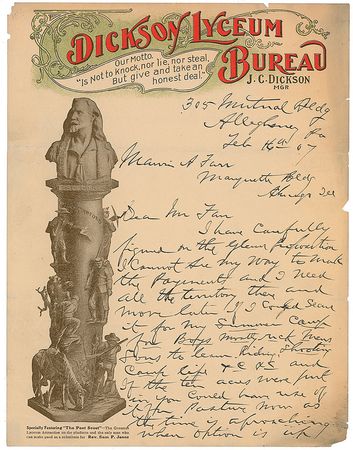 DICKSON LYCEUM
BUREAU
Our Motto.
"Is Not to Knock, nor lie, nor steal,
But give and take an
honest deal."
J. C. DICKSON
MGR
305 Mutual Bldg
Allegheny Pa
Feb 07
A Farr
Marquette Bldg
Chicago Ill
Dear Mr Farr
I have Carefully
on the
I Cannot See my Way to make
the Payments and I Need
all the territory there and
more later if I Could
it for my Summer Camp
for Boys
to learn Riding Shooting
Camp life &C &C and
if the ten acres were put
in you Could have use of
it for Pasture Now as
the time is approaching
when option is up
Specially Featuring "The Poet Scout"—The Greatest
Lyceum Attraction on the platform and the only man who
can make good as a substitute for Rev. Sam P. Jones